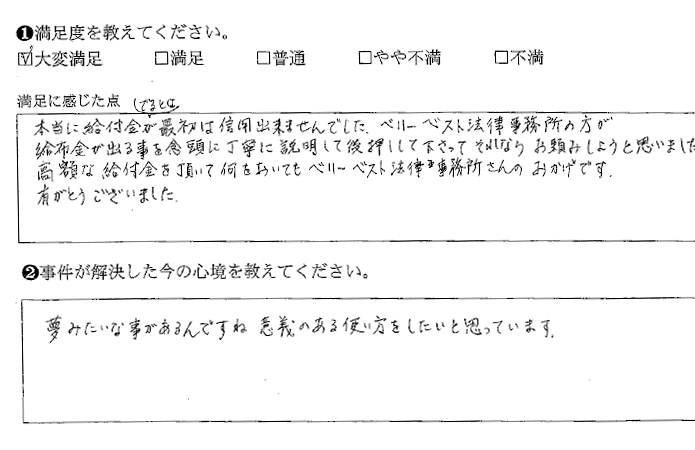 ❶満足度を教えてください。
☑大変満足 □満足 □普通 □やや不満 □不満
満足に感じた点
でるとは
本当に給付金が最初は信用出来ませんでした。ベリーベスト法律事務所の方が
給布金が出る事を念頭に丁寧に説明して後押しして下さって それなら お頼みしようと思いました
高額な給付金を頂いて何をおいてもベリーベスト法律事務所さんのおかげです。
有がとうございました。
❷事件が解決した今の心境を教えてください。
夢みたいな事があるんですね 意義のある使い方をしたいと思っています。